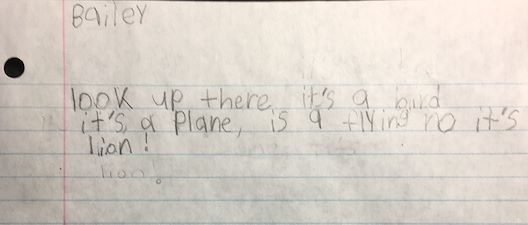 Bailey
look up there it's a bird
it's a plane, is a flying no it's
lion!
lion.